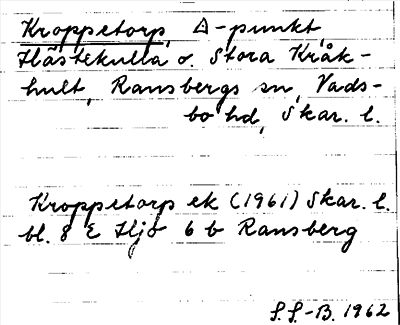 Kroppetorp, △-punkt,
Hästekulla o. Stora Kråk-
hult, Ransbergs sn, Vads-
bo hd, Skar. l.
Kroppetorp ek (1961) Skar. l.
bl. 8 E Hjo 6 b Ransberg
S.S.-B. 1962